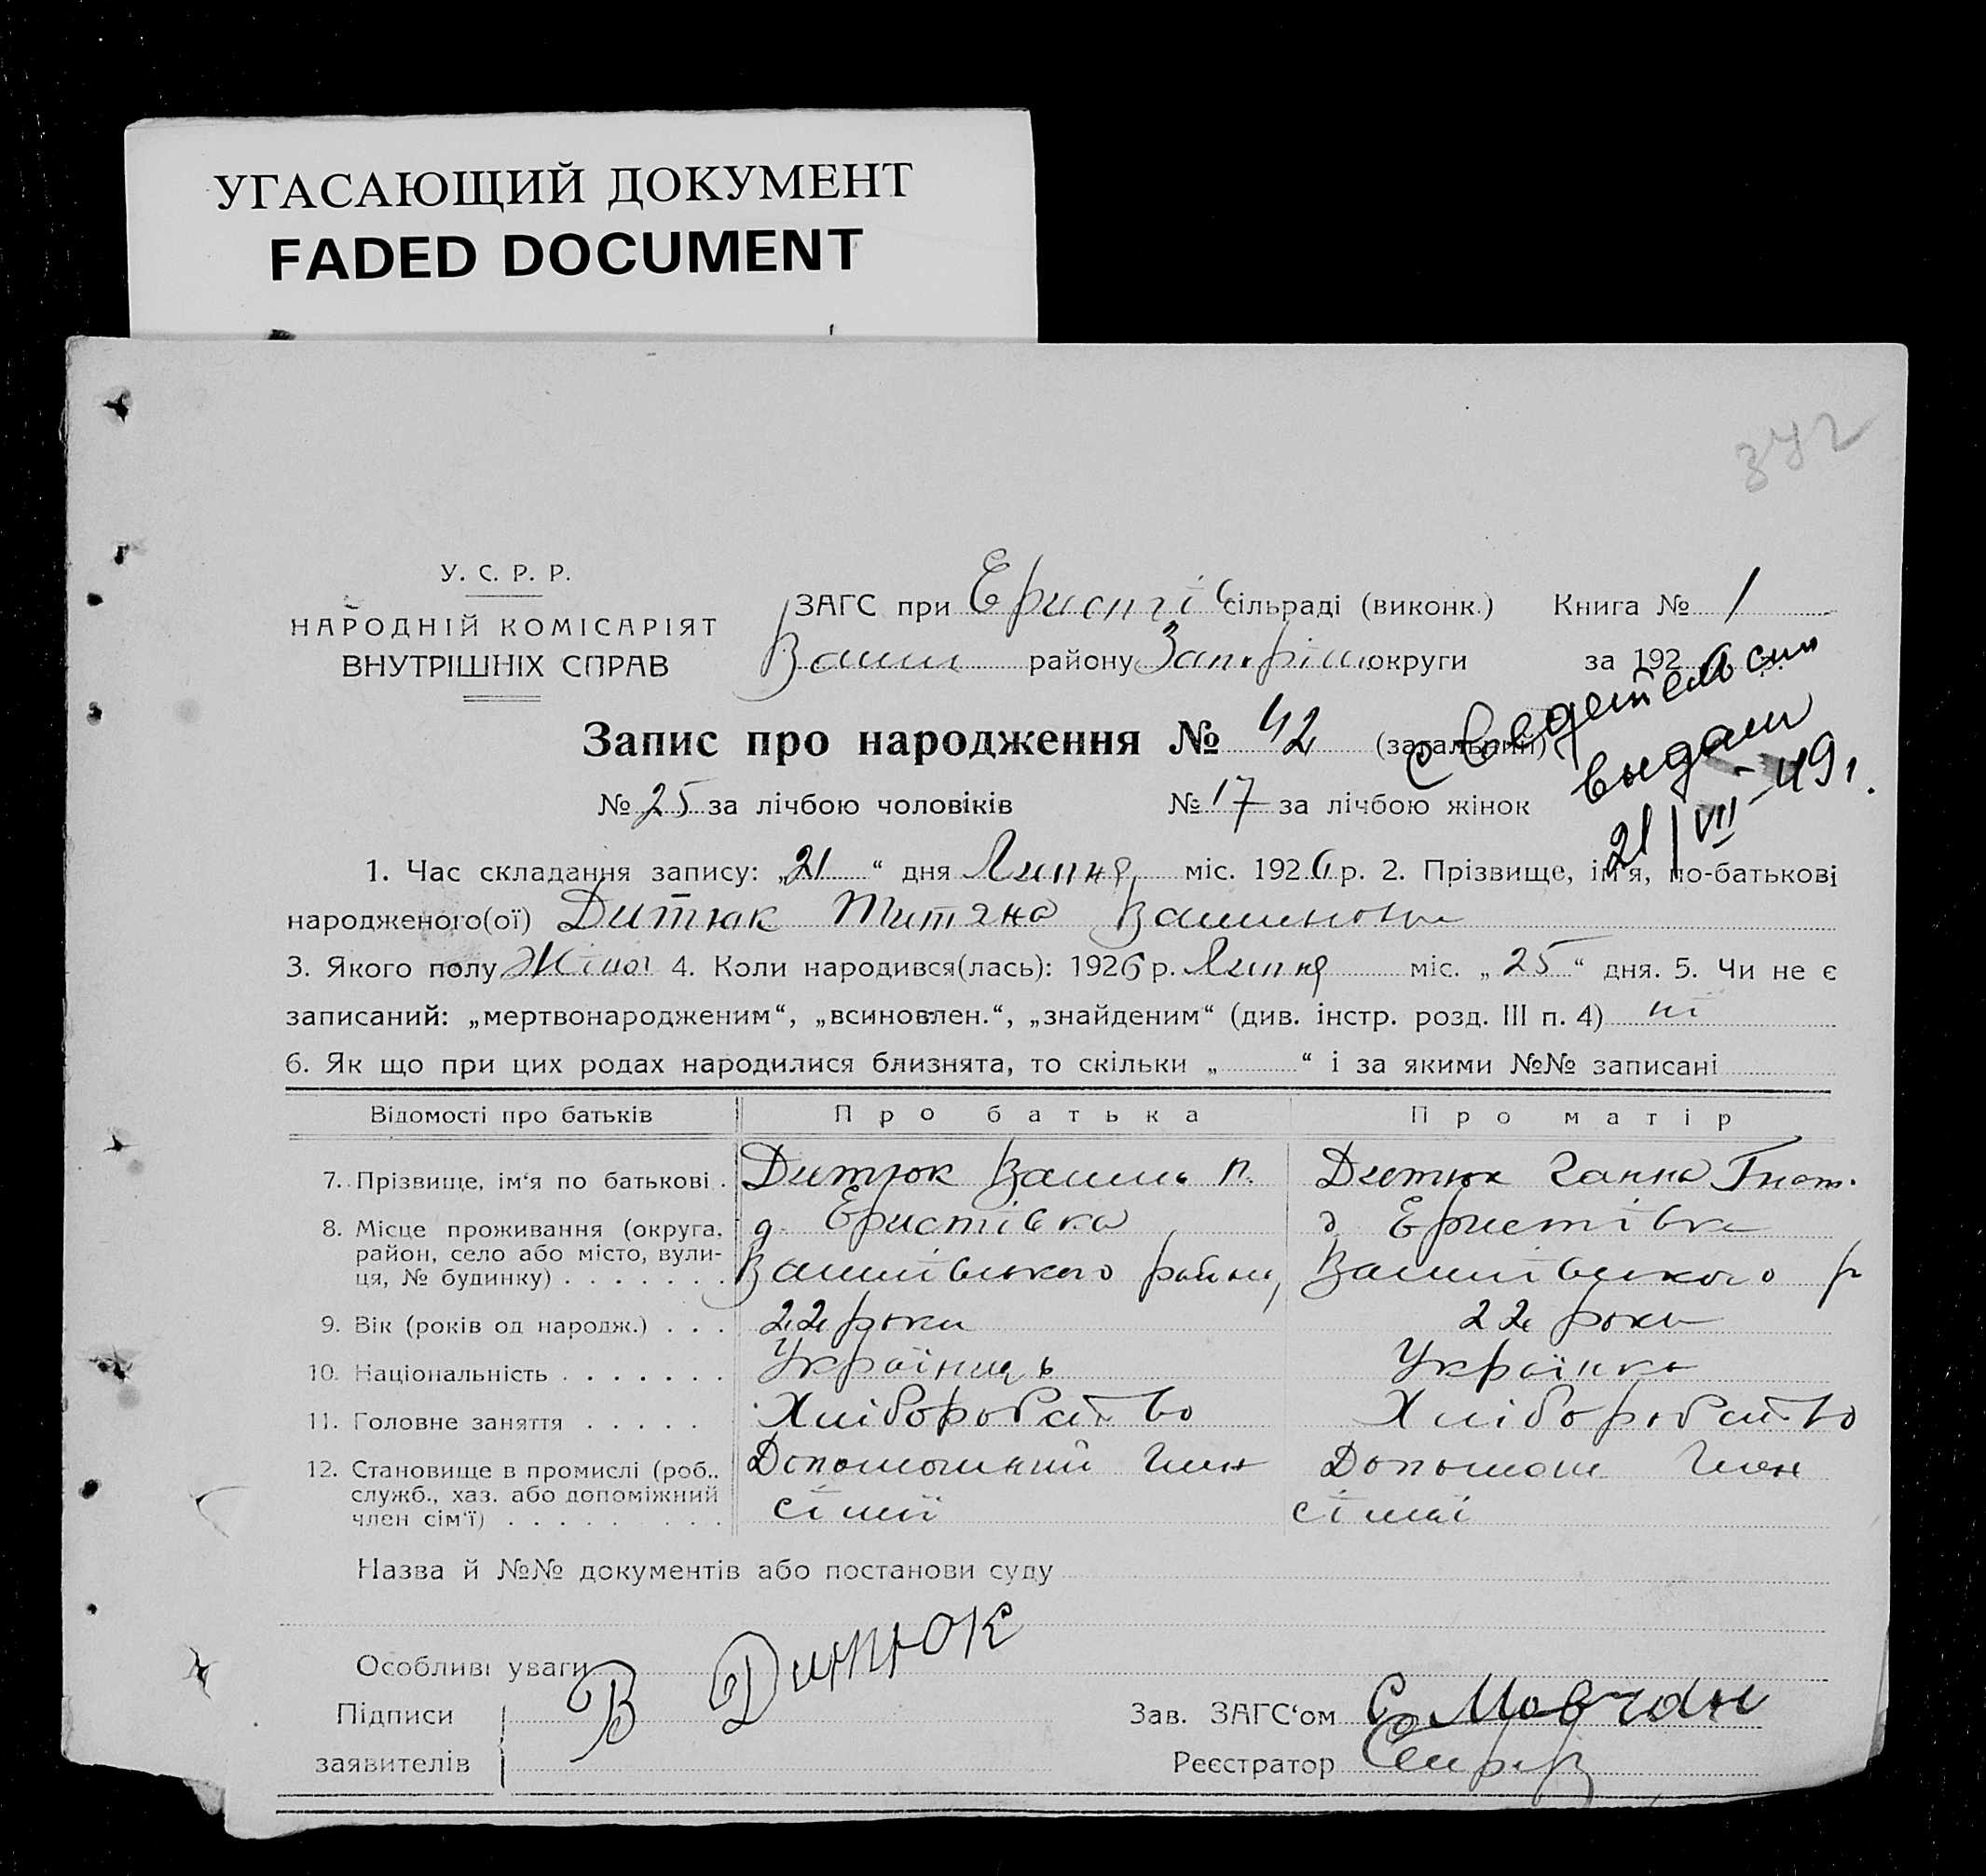 УГАСАЮЩИЙ ДОКУМЕНТ
FADED DOCUMENT
342
У. С. Р. Р.
НАРОДНІЙ КОМІСАРІЯТ
ВНУТРІШНІХ СПРАВ
ЗАГС при Еристів сільраді (виконк.) Книга № 1
Васил району Запоріш округи за 192
Запис про народження № 42 (загальний)
свидетельств
выдан
21/VII-49г.
№ 25 за лічбою чоловіків № 17 за лічбою жінок
1. Час складання запису: „21“ дня Липня міс. 1926 р. 2. Прізвище, ім'я, по-батькові
народженого(ої) Дитюк Титяна Васильовна
3. Якого полу Жіноі 4. Коли народився(лась): 1926 р. Липня міс. „25“ дня. 5. Чи не є
записаний: „мертвонародженим“, „всиновлен.“, „знайденим“ (див. інстр. розд. III п. 4) ні
6. Як що при цих родах народилися близнята, то скільки „ “ і за якими №№ записані
Відомості про батьків Про батька Про матір
7. Прізвище, ім'я по батькові . Дитюк Василь П. Дитюк Ганна Гнат.
8. Місце проживання (округа, район, село або місто, вули-ця, № будинку) . . . . . . . д. Еристівка Василівського району д Еристівка Василівського р
9. Вік (років од народж.) . . . 22 роки 22 роки
10. Національність . . . . . . . Українць Українка
11. Головне заняття . . . . . Хліборобство Хліборобство
12. Становище в промислі (роб., служб., хаз. або допоміжний член сім'ї) . . . . . . . . Допоможний член сімії Допомож член сімії
Назва й №№ документів або постанови суду
Особливі уваги
Підписи
заявителів
В Дитюк
Зав. ЗАГС'ом С. Мовчан
Реєстратор